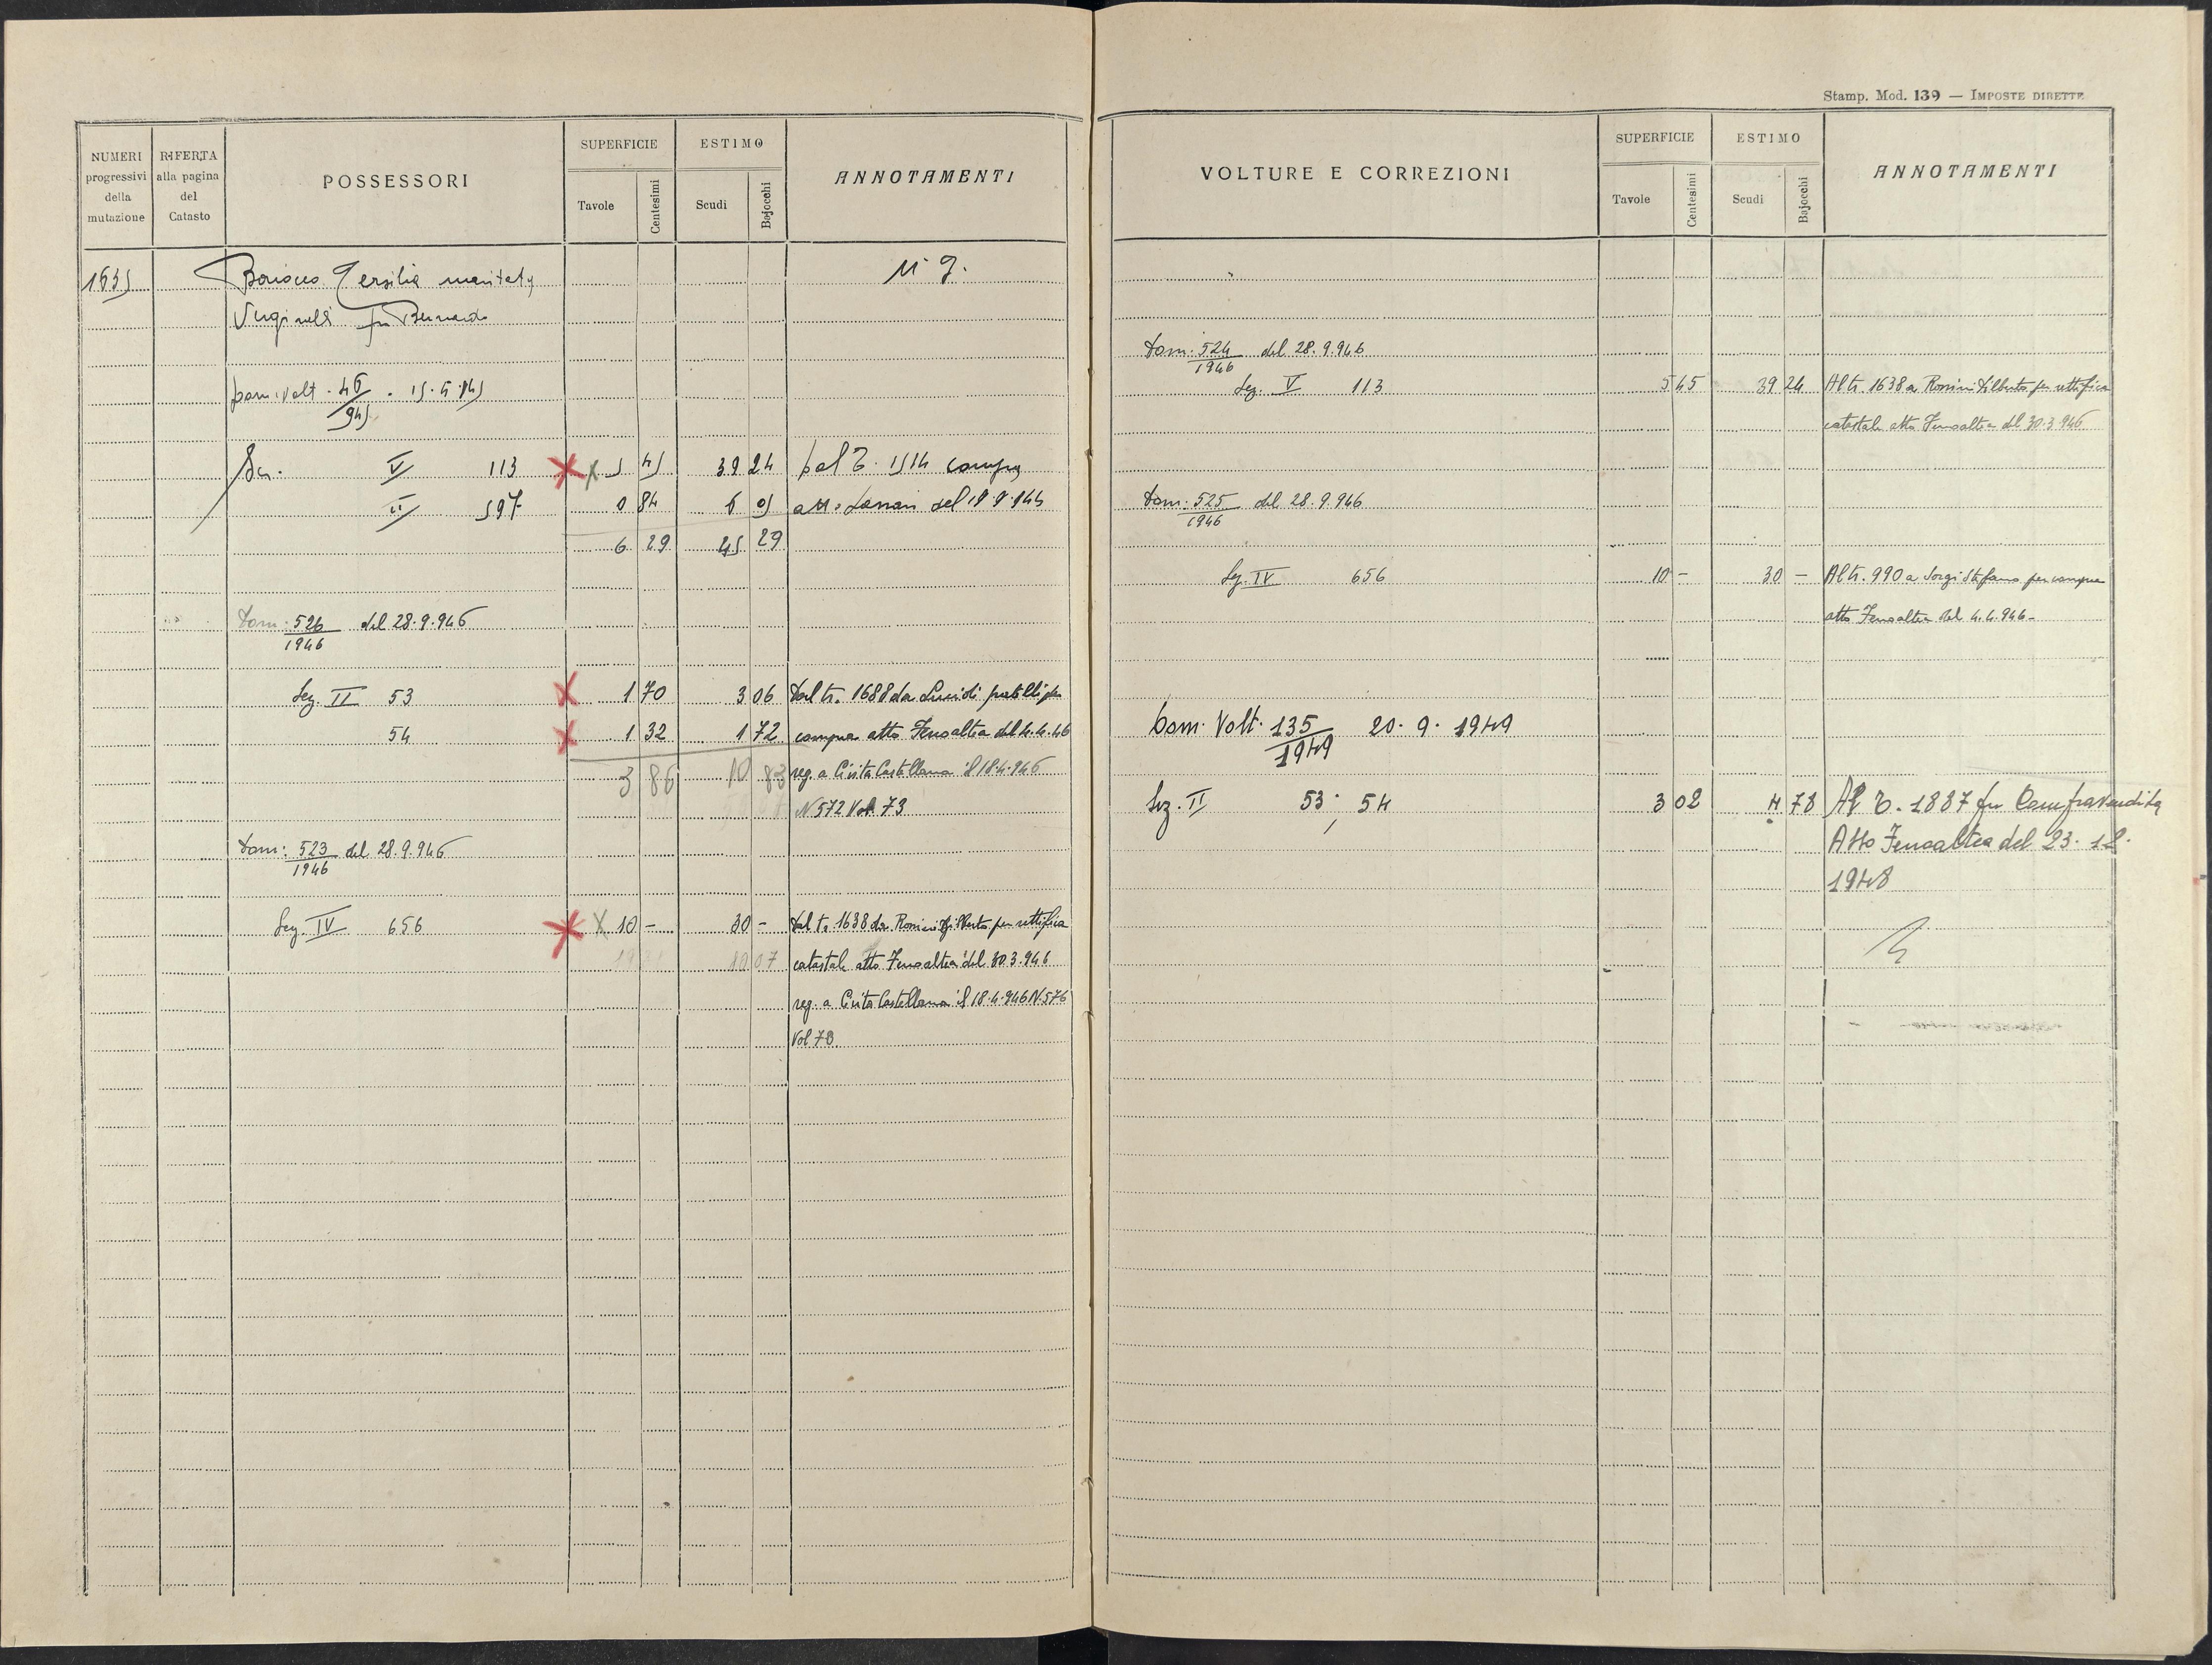 Stamp. Mod. 139 — IMPOSTE DIRETTE
NUMERI progressivi della mutazione
RIFERTA alla pagina del Catasto
POSSESSORI
SUPERFICIE
Tavole
Centesimi
ESTIMO
Scudi
Bajocchi
ANNOTAMENTI
1635 Tersilia maritata N 9.
fu Bernardo
Dom. Volt. 46/945 . 15.5.945
Sez. V 113 5 45 39 24 dal T. 1514 compra
II 597 0 84 6 05 atto del 19.9.944
6 29 45 29
Dom: 526/1946 del 28.9.946
Sez. II 53 1 70 3 06 Dal tr. 1688 da Lucidi fratelli per
54 1 32 1 72 compra atto Fenoaltea del 4.4.46
3 86 10 83 reg. a Civita Castellana il 18.4.946
N 572 Vol. 73
Dom: 523/1946 del 28.9.946
Sez. IV 656 10 — 30 — Dal tr. 1638 da Rossini per rettifica
catastale atto Fenoaltea del 30.3.946
reg. a Civita Castellana il 18.4.946 N 576
Vol 73
VOLTURE E CORREZIONI
SUPERFICIE
Tavole
Centesimi
ESTIMO
Scudi
Bajocchi
ANNOTAMENTI
Dom: 524/1946 del 28.9.946
Sez. V 113 5 45 39 24 Al tr. 1638 a Rossini per rettifica
catastale atto Fenoaltea del 30.3.946
Dom: 525/1946 del 28.9.946
Sez. IV 656 10 — 30 — Al tr. 990 a Sorgi Stefano per compra
atto Fenoaltea del 4.4.946—
Dom. Volt. 135/1949 20.9.1949
Sez. II 53, 54 3 02 4 78 Al T. 1887 per Compravendita
Atto Fenoaltea del 23.12.
1948